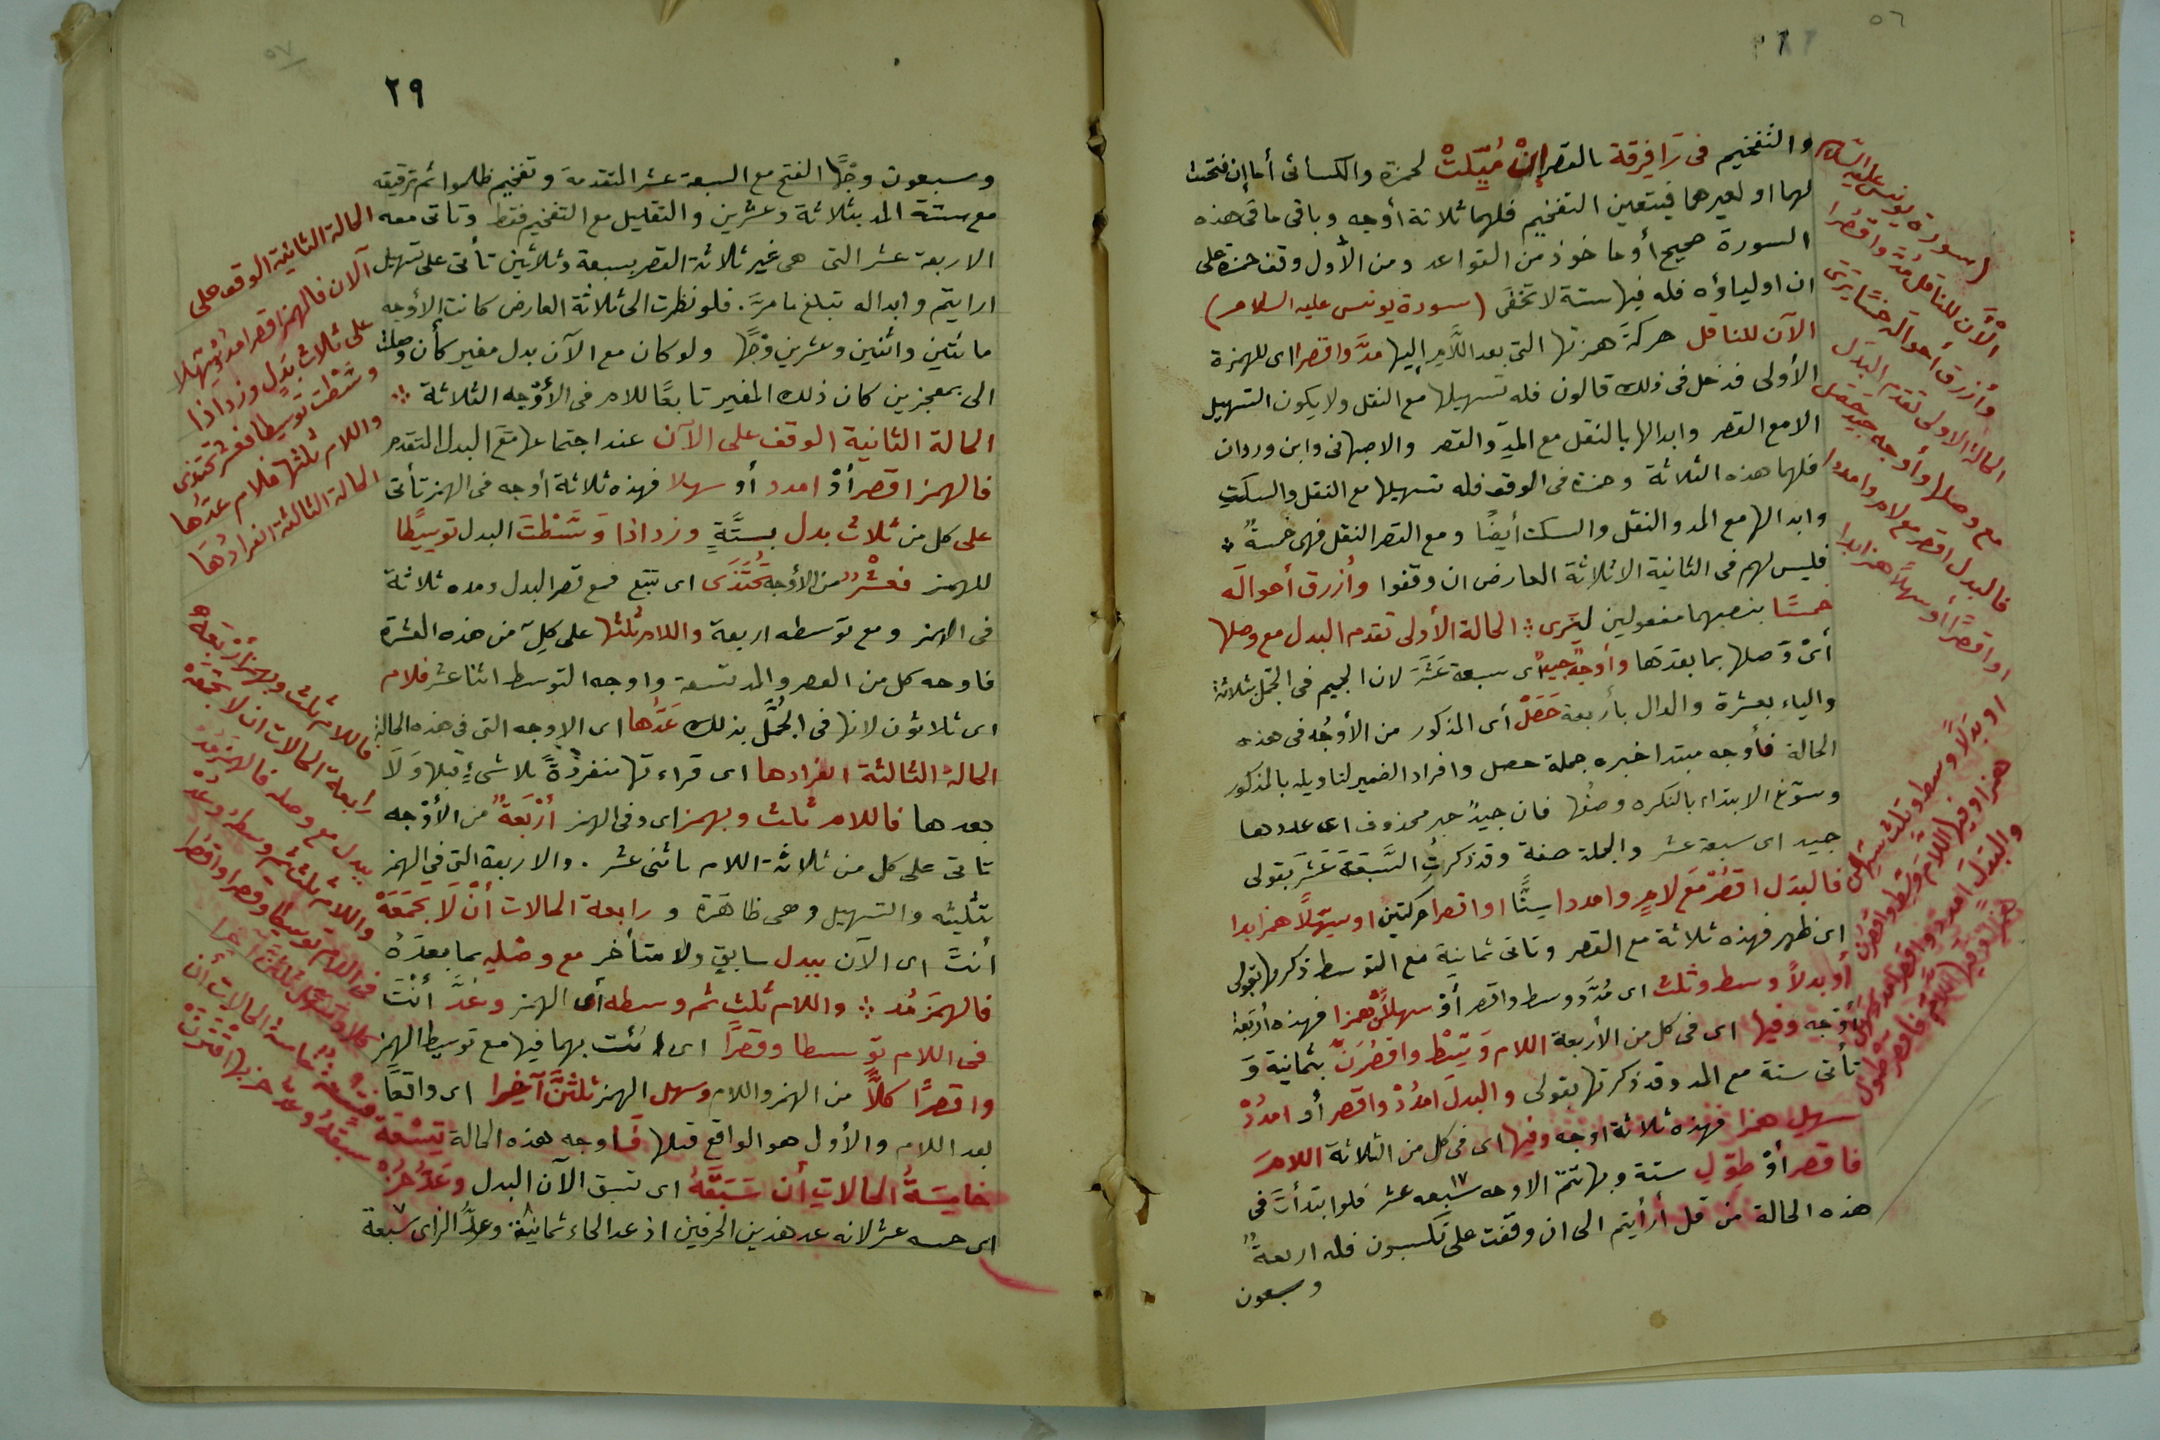 ٥٦
والتفخيم فى رَا فِرقة بالقصر إنْ مُيِّلَتْ لحمزة والكسائى أما إن فتحت
لهما او لغيرهما فيتعين التفخيم فلهما ثلاثة أوجه وباقى ما فى هذه
السورة صحيح أو ما خوذ من القواعد ومن الأول وقف حمزة على
ان اولياؤه فله فيها ستة لا تخفى (سورة يونس عليه السلام)
الآن للناقل حركةَ همزتها التى بعد اللَّام إليها مدَّ واقصرا اى للهمزة
الأولى فدخل فى ذلك قالون فله تسهيلها مع النقل ولا يكون التسهيل
الا مع القصر وابدالها بالنقل مع المدِّ والقصر والاصبهانى وابن وردان
فلهما هذه الثلاثة وحمزة فى الوقف فله تسهيلها مع النقل والسكتِ
وابدالها مع المد والنقل والسكت أيضًا ومع القصر النقل فهى خمسةٌ
فليس لهم فى الثانية الا ثلاثة العارض ان وقفوا وأزرق أحواله
خمسًا بنصبهما مفعولين لترى الحالة الأولى تقدم البدل مع وصلها
أىْ وَصلها بما بعدَها وأوجهٌ جيدٌ اى سبعة عَشَرَ لان الجيم فى الجمَّل بثلاثة
والياء بعشرة والدال بأربعة حَصَلْ أى المذكور من الأوجُه فى هذه
الحالة فأوجه مبتدا خبره جملة حصل وافراد الضمير لتاويله بالمذكور
وسوّغ الابتداء بالنكره وصفُها فان جيدٌ خبر محذوف اى عددها
جيد اى سبعة عشر والجملة صفة وقد ذكرتُ السَّبعَةَ عَشَرَ بقولى
فالبدل اقصُرْ مَعَ لامٍ وامددا سِتًّا او اقصرا حركتين او سَهِّلاً همزا بدا
اى ظهر فهذه ثلاثة مع القصر وتاتى ثمانية مع التوسط ذكرتها بقولى
أو بدلاً وسط وثلث اى مُدَّ ووسط واقصر أوْ سهلَنْ همزا فهذه أربعة
أوجه وفيها اى فى كل من الأربعة اللام وَسِّطْ واقصُرَنّ بثمانية وَ
تأتى ستة مع المد وقد ذكرتها بقولى والبدلَ امدُدْ واقصر أو امدُدْ
سهيل همزا فهذه ثلاثة اوجه وفيها اى فى كل من الثلاثة اللامَ
فاقصر أوْ طوّلِ ستة وبها تتم الاوجه سبعه عشر ١٧ فلو ابتدأتَ فى
هذه الحالة من قل أرأيتم الى ان وقفت على تكسبون فله اربعةٌ
وسبعون
(سورة يونس عليه السلام
الآن للناقل مُدَّ واقصُرا
وأزرق أحواله خمسًا ترى
الحالة الاولى تقدم البدل
مع وصلها وأوجه جيد حَصَل
فالبدل اقصر مع لام وامددا
او اقصرًا أو سهلاً همزا بدا
او بدلاً وسط وثلث سهلن
همزا وفيها اللام وسط واقصرن
والبدلَ امدد واقصر امدد سهل
همزا وفيها اللام فاقصر طول
٥٧
٢٩
وسبعون وجهًا الفتح مع السبعة عشر المتقدمة وتفخيم ظلموا ثم ترقيقه
مع ستة المد بثلاثة وعشرين والتقليل مع التفخيم فقط وتاتى معه
الاربعة عشر التى هى غير ثلاثة القصر بسبعة وثلاثين تأتى على تسهيل
ارايتم وابداله تبلغ ما مرَّ. فلو نظرت الى ثلاثة العارض كانت الأوجه
مائتين واثنين وعشرين وجهًا ولو كان مع الآن بدل مغير كأن وصلت
الى بمعجزين كان ذلك المغير تابعًا للام فى الأوْجه الثلاثة
الحالة الثانية الوقف على الآن عند اجتماعها مَعَ البدل المتقدم
فالهمز اقصر أوْ امدد أو سهلا فهذه ثلاثة أوجه فى الهمز تأتى
على كل من ثلاث بدل بستَّةٍ وزد اذا وَسَّطتَ البدل توسِيطًا
للهمز فعشْرٌ من الأوجه تُحتَذَى اى تتبع فمع قصر البدل ومده ثلاثة
فى الهمز ومع توسطه اربعة واللام ثلثها على كلٍّ من هذه العشرة
فاوجه كل من القصر والمد تسعة واوجه التوسط اثنا عشر فلام
اى ثلاثون لانها فى الجُمَّل بذلك عَدُّها اى الاوجه التى فى هذه الحالة
الحالة الثالثة انفرادها اى قراءتها منفردَةً بلا شىءٍ قبلها وَلَا
بعدها فاللام ثلث وبهمز اى وفى الهمز أرْبَعَةٌ من الأوْجه
تاتى على كل من ثلاثة اللام باثنى عشر. والاربعة التى فى الهمز
تثليثه والتسهيل وهى ظاهَرة و رابعة الحالات أنْ لَا تجمَعَهْ
أنتَ اى الآن ببدل سابقٍ ولا متأخر مع وصْلِه بما بعدَهُ
فالهمَز مُد واللام ثلث ثم وسطه أى الهمز وَعُدَّ أنْتَ
فى اللام توسطا وقصرًا اى ائت بهما فيها مع توسيط الهمز
واقصرًا كلاًّ من الهمز واللام وسهل الهمز ثلثنَّ آخِرا اى واقعًا
بعد اللام والأول هو الواقع قبلها فأوجه هذه الحالة تِسْعَةٌ
خامِسَةُ الحالاتِ أن سَبَقَهُ اى تسبق الآن البدل وَعَدُّ حُزْ
اى خمسه عشر لانه عد هذين الحرفين اذ عد الحاء ثمانية ٨ وعدُّ الزاى سبعة ٧
الحالة الثانية الوقف على
آلآن فالهمز اقصر امدد سَهِّلا
على ثلاث بَدَلٍ وزد اذا
وسَّطت توسيطا فعشر تحتذى
واللام ثلثها فلام عَدُّها
الحالة الثالثة انفرادُهَا
فاللام ثلث وبهمز أربَعَهْ
رابعة الحالات ان لا تجمَعَهْ
ببدل مع وصله فالهمز مُد
واللام ثلث ثم وسطه وعُدْ
فى اللام توسيطا وقصرا واقصُرا
كلاًّ وسهل ثلثنَّ آخرا
فتسعة خامسة الحالات أن